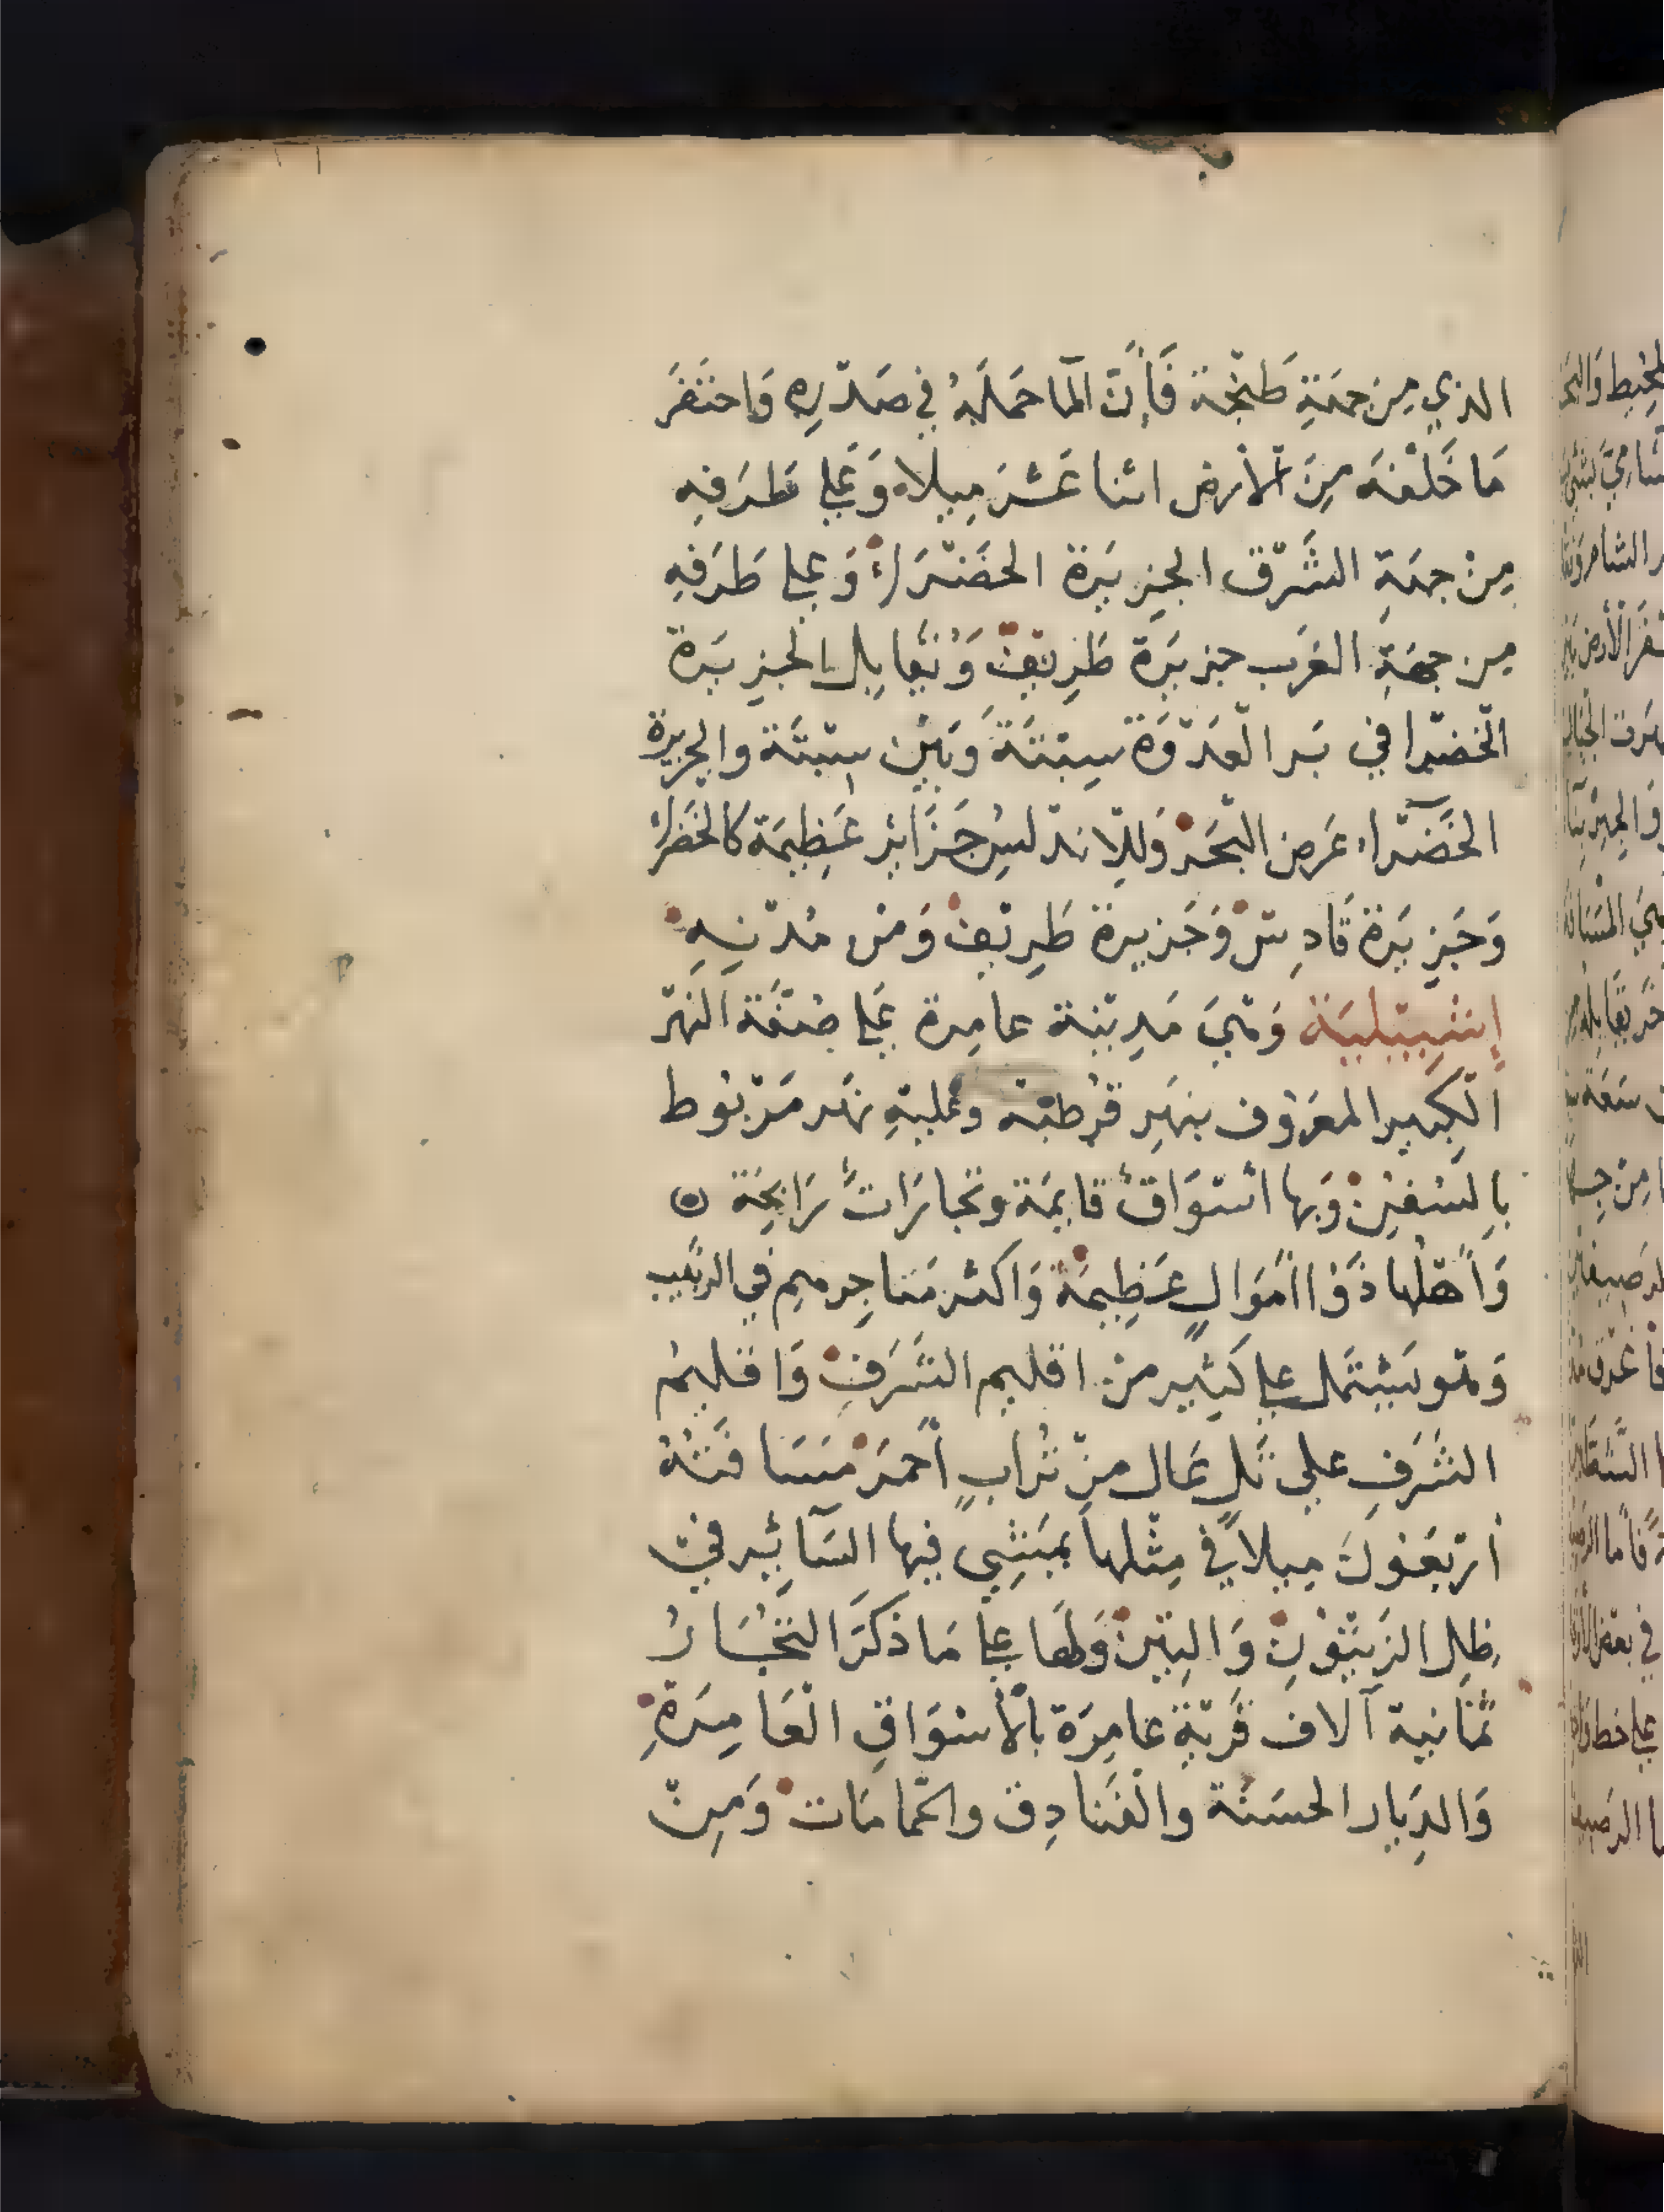 الذي مِنْ جهَةِ طَنْجَة فَإنَّ المآ حَمَلَهُ في صَدْرِهِ وَاحتَفَرَ
مَا خَلْفَهُ مِنَ الْأَرْض اثنا عَشَرَ مِيلاً وَعَلي طَرَفِهِ
مِنْ جهَةِ الشَّرْق الجَزِيرَة الخَضْرَاء وَعلى طَرَفِهِ
مِن جهَةِ الغَرب جزيرَة طَرِيْف وَيُقَابِل الجزِيرَة
الْخَضْرا في بَر الْعَدْوَة سِبْتَةَ وَبَيْنَ سِبْتَة والجزيرة
الخَضْرَآء عَرض البْحَر وَللِأندلسِ جَزَائِر عَظِيمَة كالخَضْراء
وَجَزِيرَة قَادِسْ وَجَزِيرة طَرِيْف وَمِنْ مُدْنِهِ
إِشْبِيْلِيَة وَهيَ مَدِيْنَة عامِرة عَلي ضفَّة النَهْر
الْكَبِير المعَرُوف بنهَرِ قُرطبَة وعليْهِ نهَر مَرْبُوط
بِالسُفُنِ وَبها اسْوَاقٌ قايمَة وَتجَارَاتٌ رَابحَة ۞
وَأَهْلُها ذَوْا امْوَالٍ عَظِيمَة وَاكثر مَتَاجِرهم في الزيْت
وَهْو يَشْتمَل علي كَثِير مِنْ اقليم الشَرَفِ وَاقليمُ
الشَرَفِ علي تَلٍ عَالٍ مِنْ تُرَابٍ أَحْمَرَ مَسَافَتُهُ
أَرْبَعُونَ مِيلاً في مِثْلهاَ يمَشِي فيها السَآئِر فيْ
ظِلِ الزَيْتُونِ وَالتِيْنِ وَلهَا عَلي مَا ذَكَرَ التجُّارُ
ثمَانية آلاف قَرْيَة عَامِرَة بالْأسْوَاقِ الْعَامِرَةِ
وَالدِيَار الحسَنَة والْفَنَادِق والحَّمامَات وَمِنْ